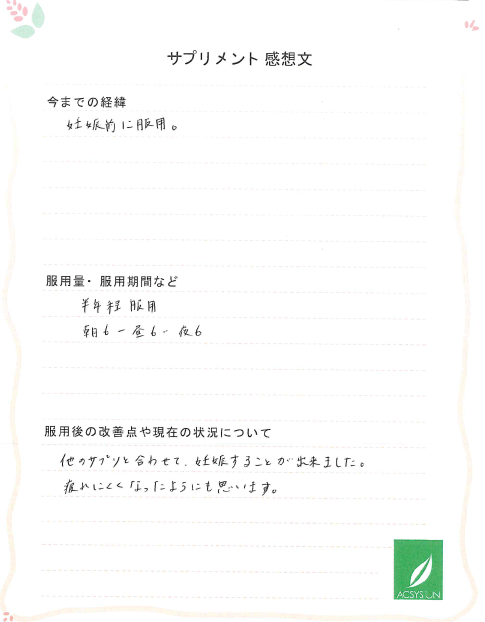 サプリメント 感想文
今までの経緯
妊娠前に服用。
服用量・服用期間など
半年程 服用
朝6 ー 昼6 ー 夜6
服用後の改善点や現在の状況について
他のサプリと合わせて、妊娠することが出来ました。
疲れにくくなったようにも思います。
ACSYSUN